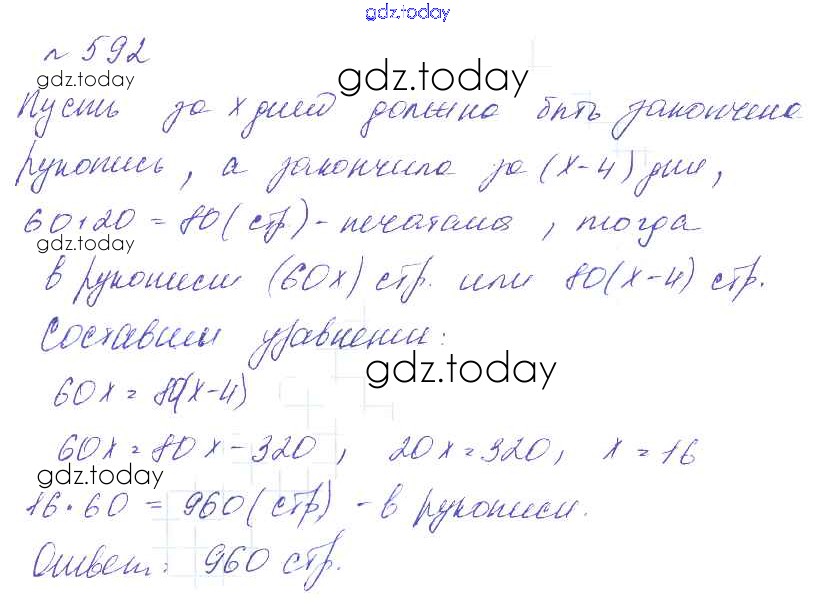 gdz.today
№ 592
gdz.today
gdz.today
Пусть за x дней должна быть закончена
рукопись, а закончила за (x-4) дня,
60+20 = 80 (стр) - печатала, тогда
gdz.today
в рукописи (60x) стр. или 80(x-4) стр.
Составим уравнение:
gdz.today
60x = 80(x-4)
60x = 80x - 320, 20x = 320, x = 16
gdz.today
16·60 = 960 (стр) - в рукописи.
Ответ: 960 стр.